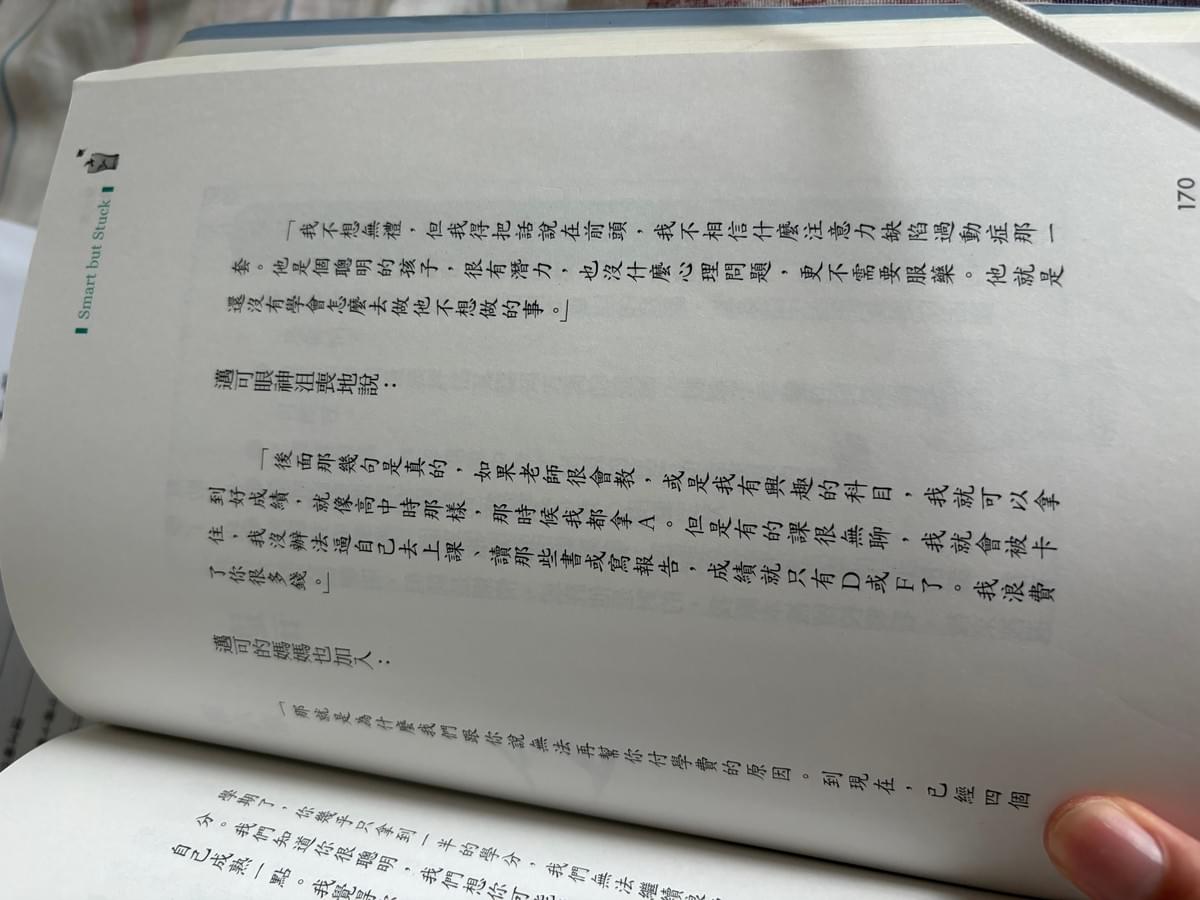 Smart but Stuck
170
「我不想無禮，但我得把話說在前頭，我不相信什麼注意力缺陷過動症那一
套。他是個聰明的孩子，很有潛力，也沒什麼心理問題，更不需要服藥。他就是
還沒有學會怎麼去做他不想做的事。」
邁可眼神沮喪地說：
「後面那幾句是真的，如果老師很會教，或是我有興趣的科目，我就可以拿
到好成績，就像高中時那樣，那時候我都拿A。但是有的課很無聊，我就會被卡
住，我沒辦法逼自己去上課、讀那些書或寫報告，成績就只有D或F了。我浪費
了你很多錢。」
邁可的媽媽也加入：
「那就是為什麼我們跟你說無法再幫你付學費的原因。到現在，已經四個
學期了，你幾乎只拿到一半的學分，我們無法繼續
分。我們知道你很聰明，我們想你可能
自己成熟一點。我覺得